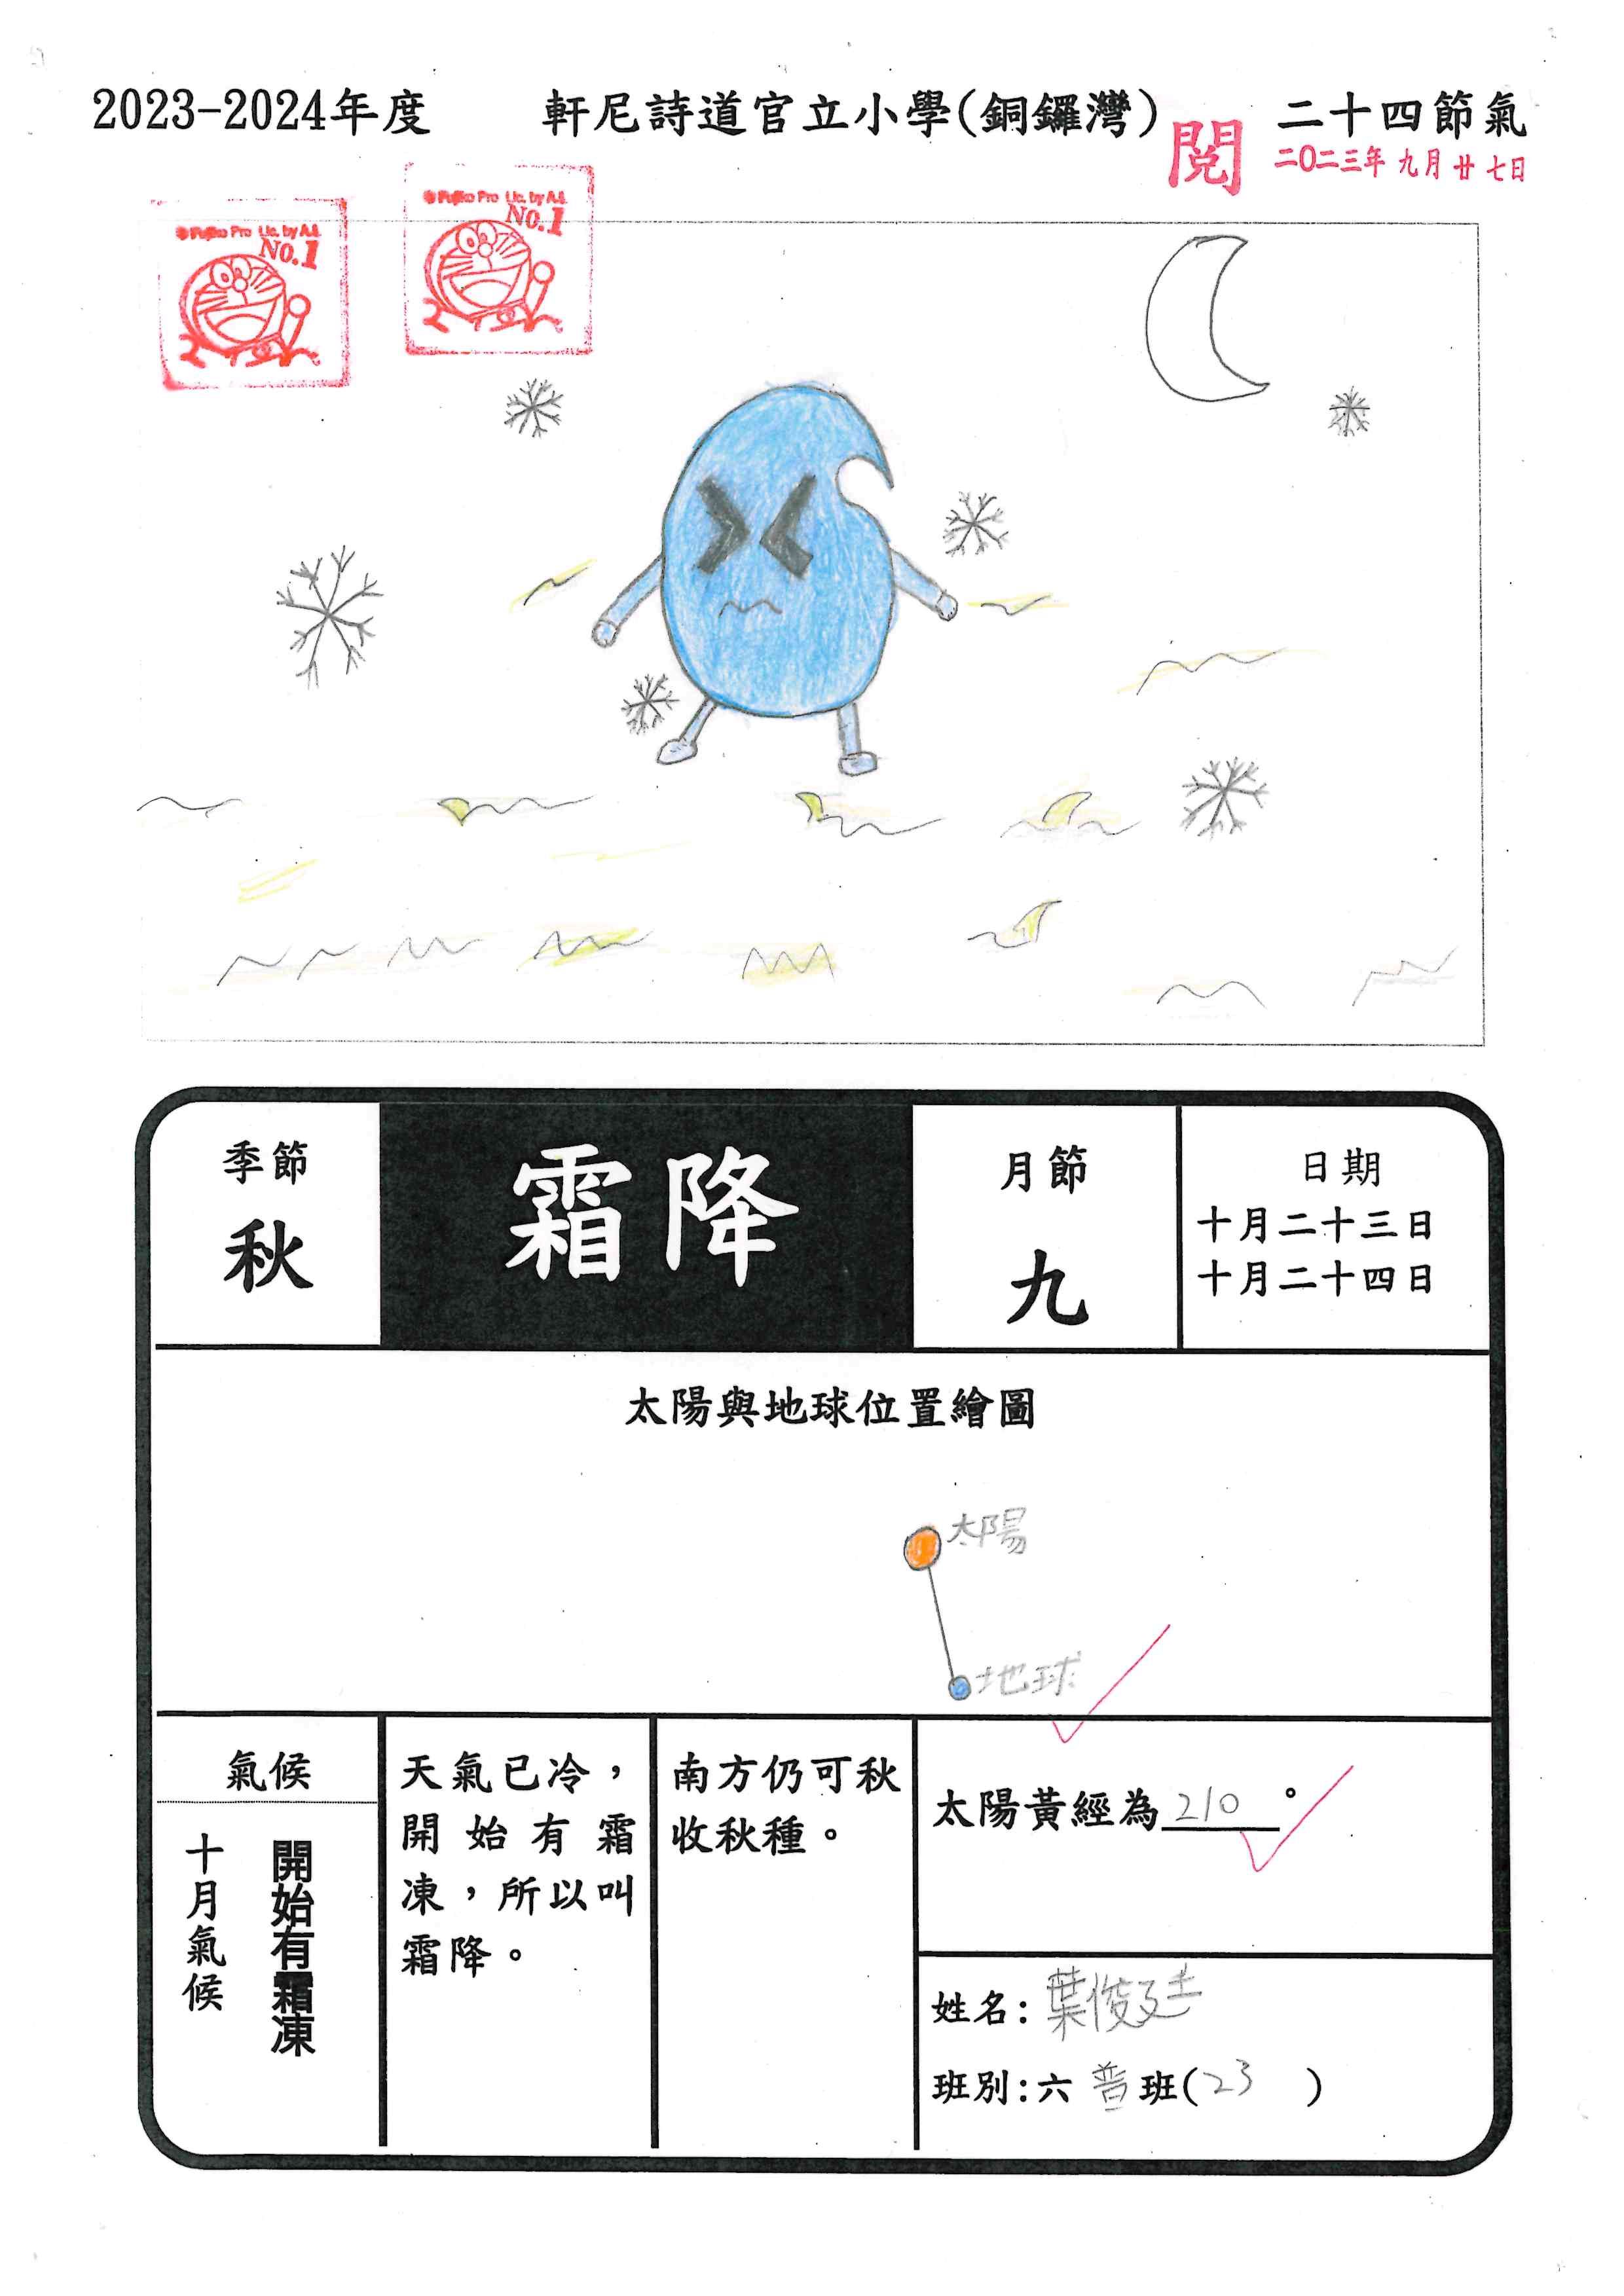 2023-2024年度 軒尼詩道官立小學(銅鑼灣) 二十四節氣
閱 二〇二三年九月廿七日
© Fujiko Pro Lic. by A.I.
No.1
© Fujiko Pro Lic. by A.I.
No.1
季節
秋
霜降
月節
九
日期
十月二十三日
十月二十四日
太陽與地球位置繪圖
太陽
地球
氣候
十月氣候
開始有霜凍
天氣已冷，
開始有霜
凍，所以叫
霜降。
南方仍可秋
收秋種。
太陽黃經為210°
姓名:葉俊廷
班別:六普班(23)